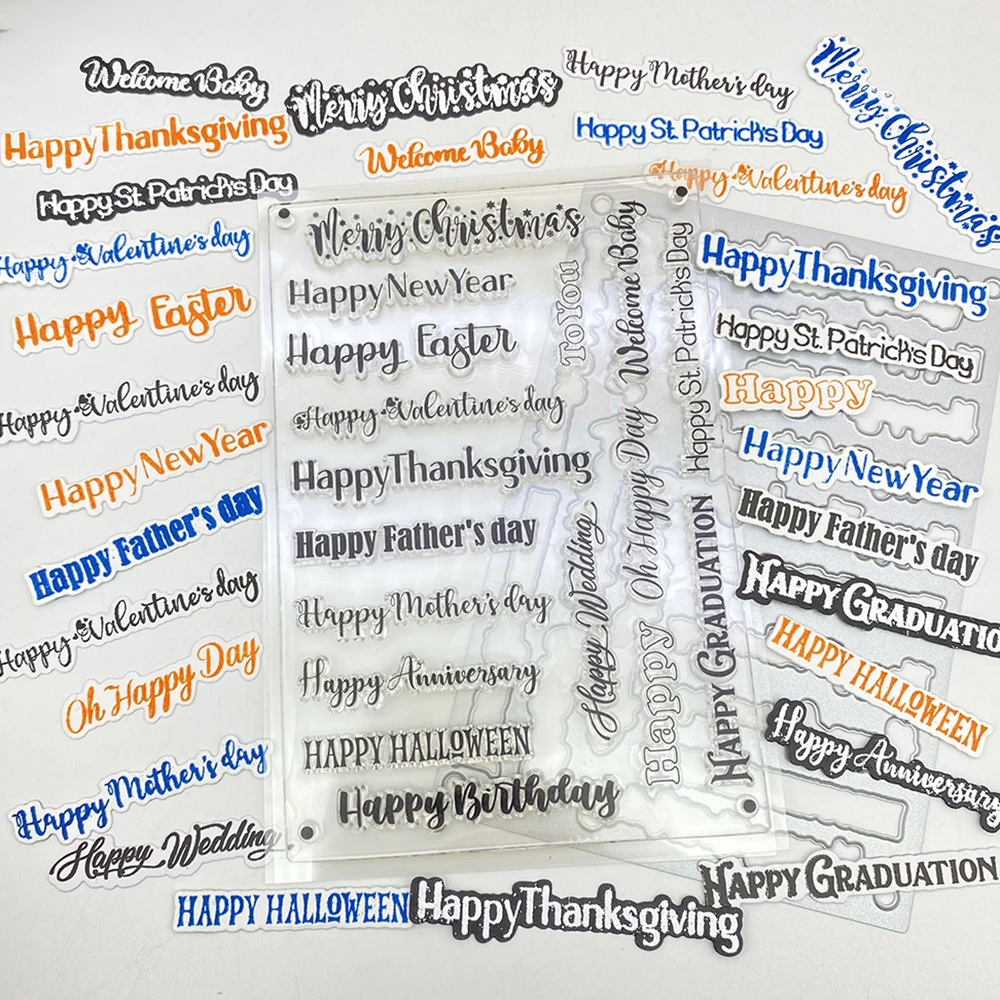 Welcome Baby
Merry Christmas
Happy Mother's day
Merry Christmas
Happy Thanksgiving
Welcome Baby
Happy St. Patrick's Day
Happy St. Patrick's Day
Happy Valentine's day
Happy Valentine's day
Happy Easter
Happy Valentine's day
Happy New Year
Happy Father's day
Happy Valentine's day
Oh Happy Day
Happy Mother's day
Happy Wedding
Merry Christmas
Happy New Year
Happy Easter
Happy Valentine's day
Happy Thanksgiving
Happy Father's day
Happy Mother's day
Happy Anniversary
HAPPY HALLOWEEN
Happy Birthday
To You
Happy Wedding
Welcome Baby
Oh Happy Day
Happy
Happy St. Patrick's Day
HAPPY GRADUATION
Happy Thanksgiving
Happy St. Patrick's Day
Happy
Happy New Year
Happy Father's day
HAPPY GRADUATIO
HAPPY HALLOWEEN
Happy Anniversary
HAPPY GRADUATION
HAPPY HALLOWEEN
Happy Thanksgiving